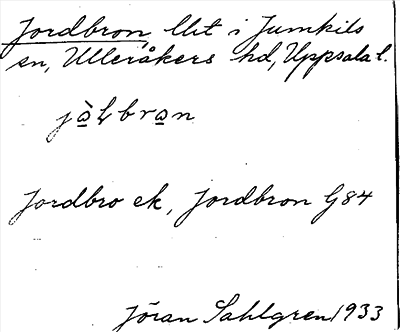 Jordbron, llit i Jumkils
sn, Ulleråkers hd, Uppsala l.
jò̲ɫbro̲n
Jordbro ek, Jordbron G84
Jöran Sahlgren 1933